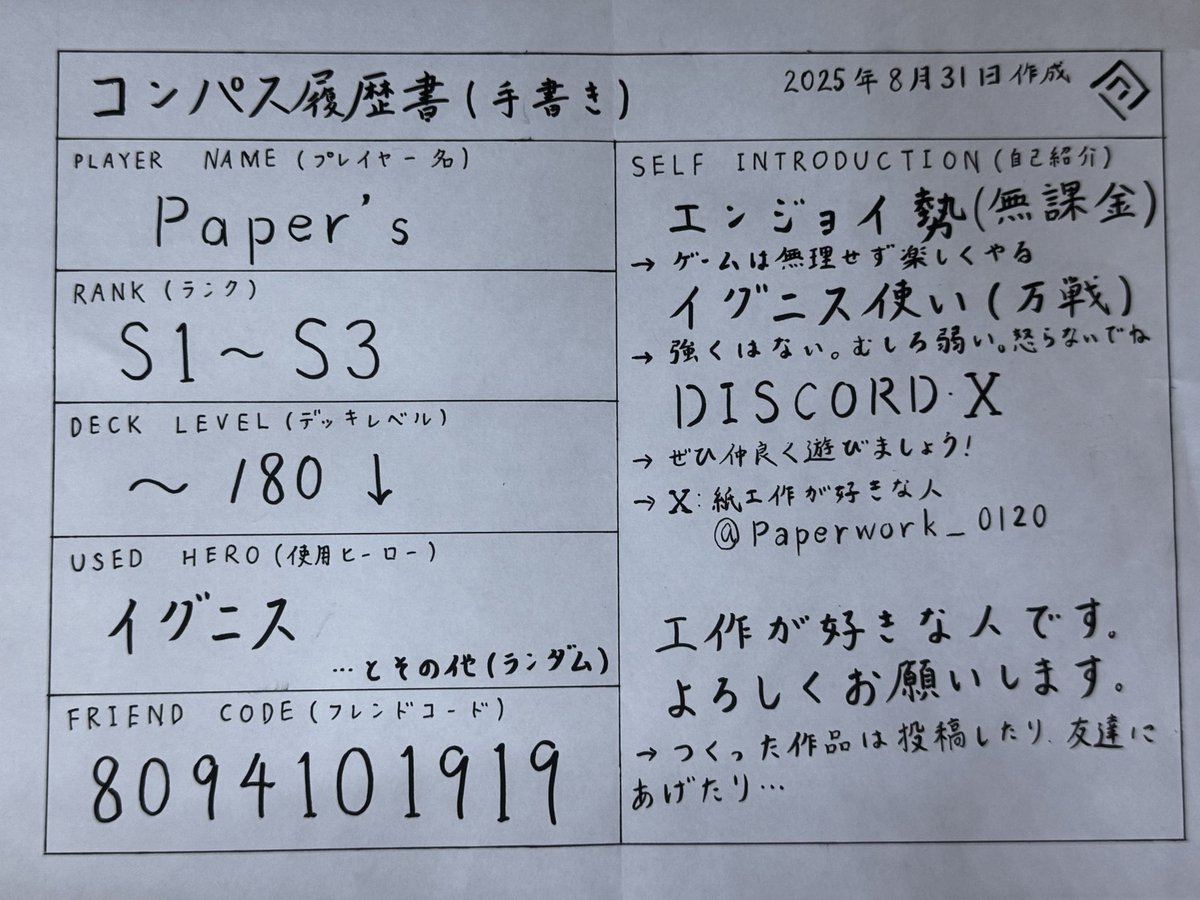 コンパス履歴書(手書き)
2025年8月31日作成
PLAYER NAME(プレイヤー名)
Paper's
RANK(ランク)
S1〜S3
DECK LEVEL(デッキレベル)
〜180↓
USED HERO(使用ヒーロー)
イグニス
…とその他(ランダム)
FRIEND CODE(フレンドコード)
8094101919
SELF INTRODUCTION(自己紹介)
エンジョイ勢(無課金)
→ ゲームは無理せず楽しくやる
イグニス使い(万戦)
→ 強くはない。むしろ弱い。怒らないでね
DISCORD・X
→ ぜひ仲良く遊びましょう!
→ X:紙工作が好きな人
@Paperwork_0120
工作が好きな人です。
よろしくお願いします。
→つくった作品は投稿したり、友達に
あげたり…